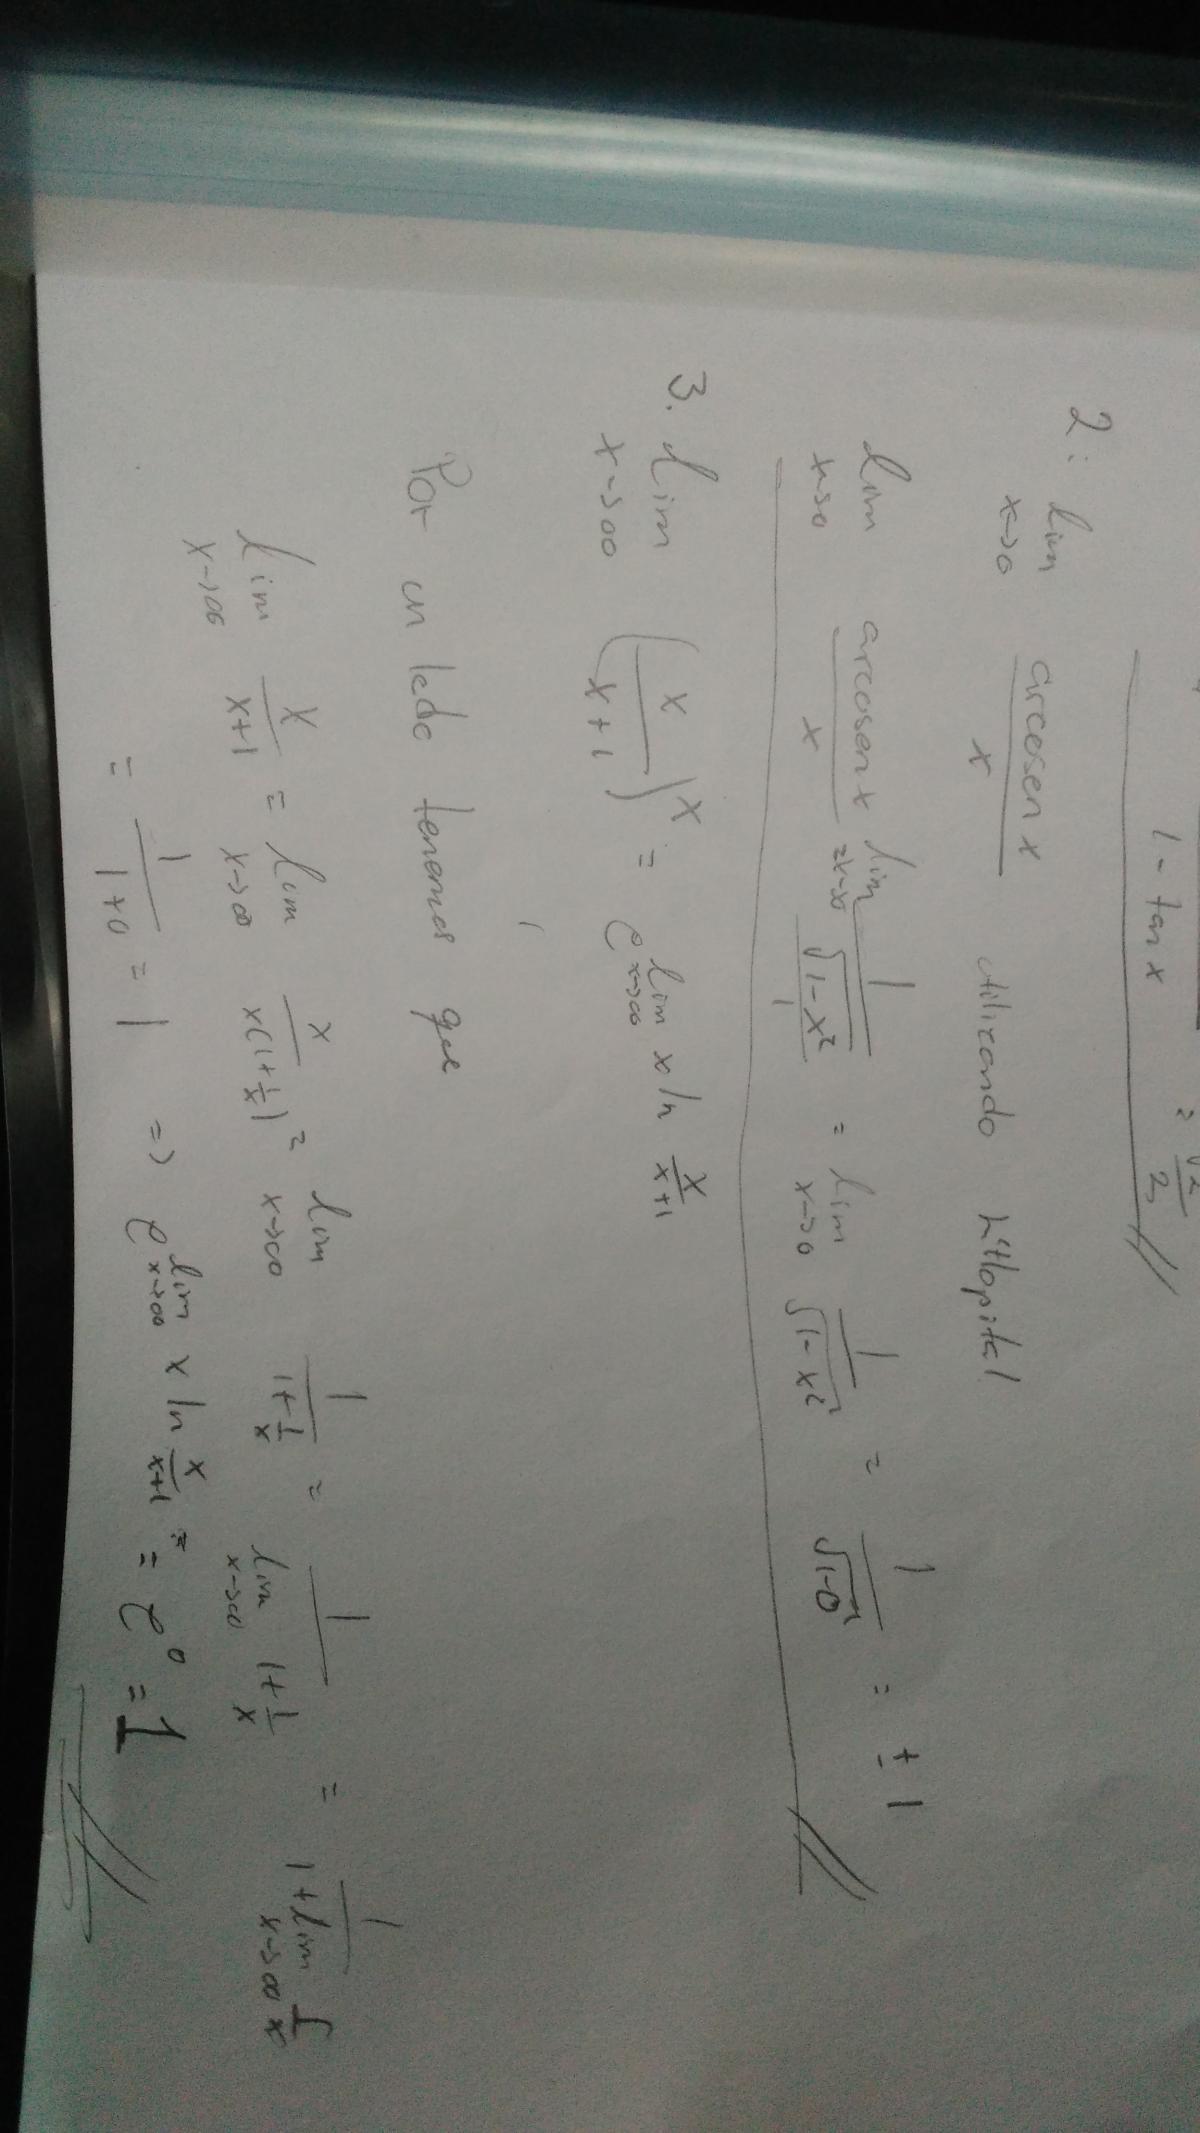 1 - tan x = √2/2
2: lim x→0 arcosen x / x utilizando L'Hopital
lim x→0 arcosen x / x = lim x→0 (1/√(1-x²))/1 = lim x→0 1/√(1-x²) = 1/√(1-0²) = ±1
3. lim x→∞ (x/(x+1))^x = e^(lim x→∞ x ln x/(x+1))
Por un lado tenemos que
lim x→∞ x/(x+1) = lim x→∞ x/(x(1+1/x)) = lim x→∞ 1/(1+1/x) = 1/(lim x→∞ 1+1/x) = 1/(1+lim x→∞ 1/x)
= 1/(1+0) = 1 => e^(lim x→∞ x ln x/(x+1)) = e^0 = 1